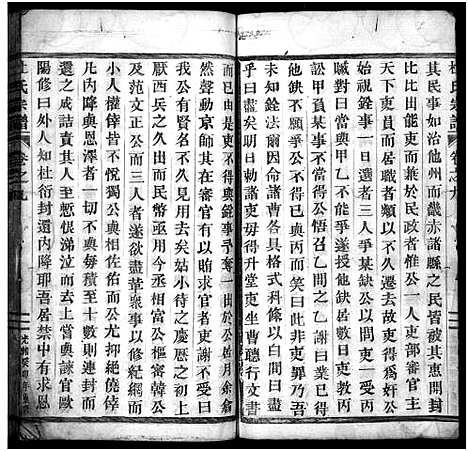 杜氏宗譜
其民事如治他州而畿赤諸縣之民皆被其惠開封
比比出能吏而兼於民政者惟公一人吏部審官主
天下吏員而居職者類以不久遷去故吏得為奸公
始視銓事一日選者三人爭某缺公以問一吏吏受丙
賕對曰當與甲乙不能爭遂授他缺居數日吏教丙
訟甲負某事不當得公悟召乙問之乙謝曰業已得
他缺不願爭公不得已與丙而笑曰此非吏罪乃吾
未知銓法爾因命諸曹各具格式科條以白問曰盡
乎曰盡矣明日勒諸吏毋得升堂使坐曹聽行文書
而已由是吏不得與銓事與奪一出於公居月餘翕
然聲動京師其在審官有以賄求官者吏謝不受曰
我公有賢名不久見用去矣姑小待之慶歷之初上
厭西兵之久出而民幣亟用今丞相富公樞密韓公
及范文正公而三人者遂欲盡革衆事以修紀綱而
小人權倖皆不悅獨公與相佐佑而公尤抑絕僥倖
凡內降與恩澤者一切不與每積至十數則連封而
還之或詰責其人至慙恨涕泣而去上嘗與諫官歐
陽修曰外人知杜衍封還內降耶吾居禁中有求
杜氏宗譜
卷之九